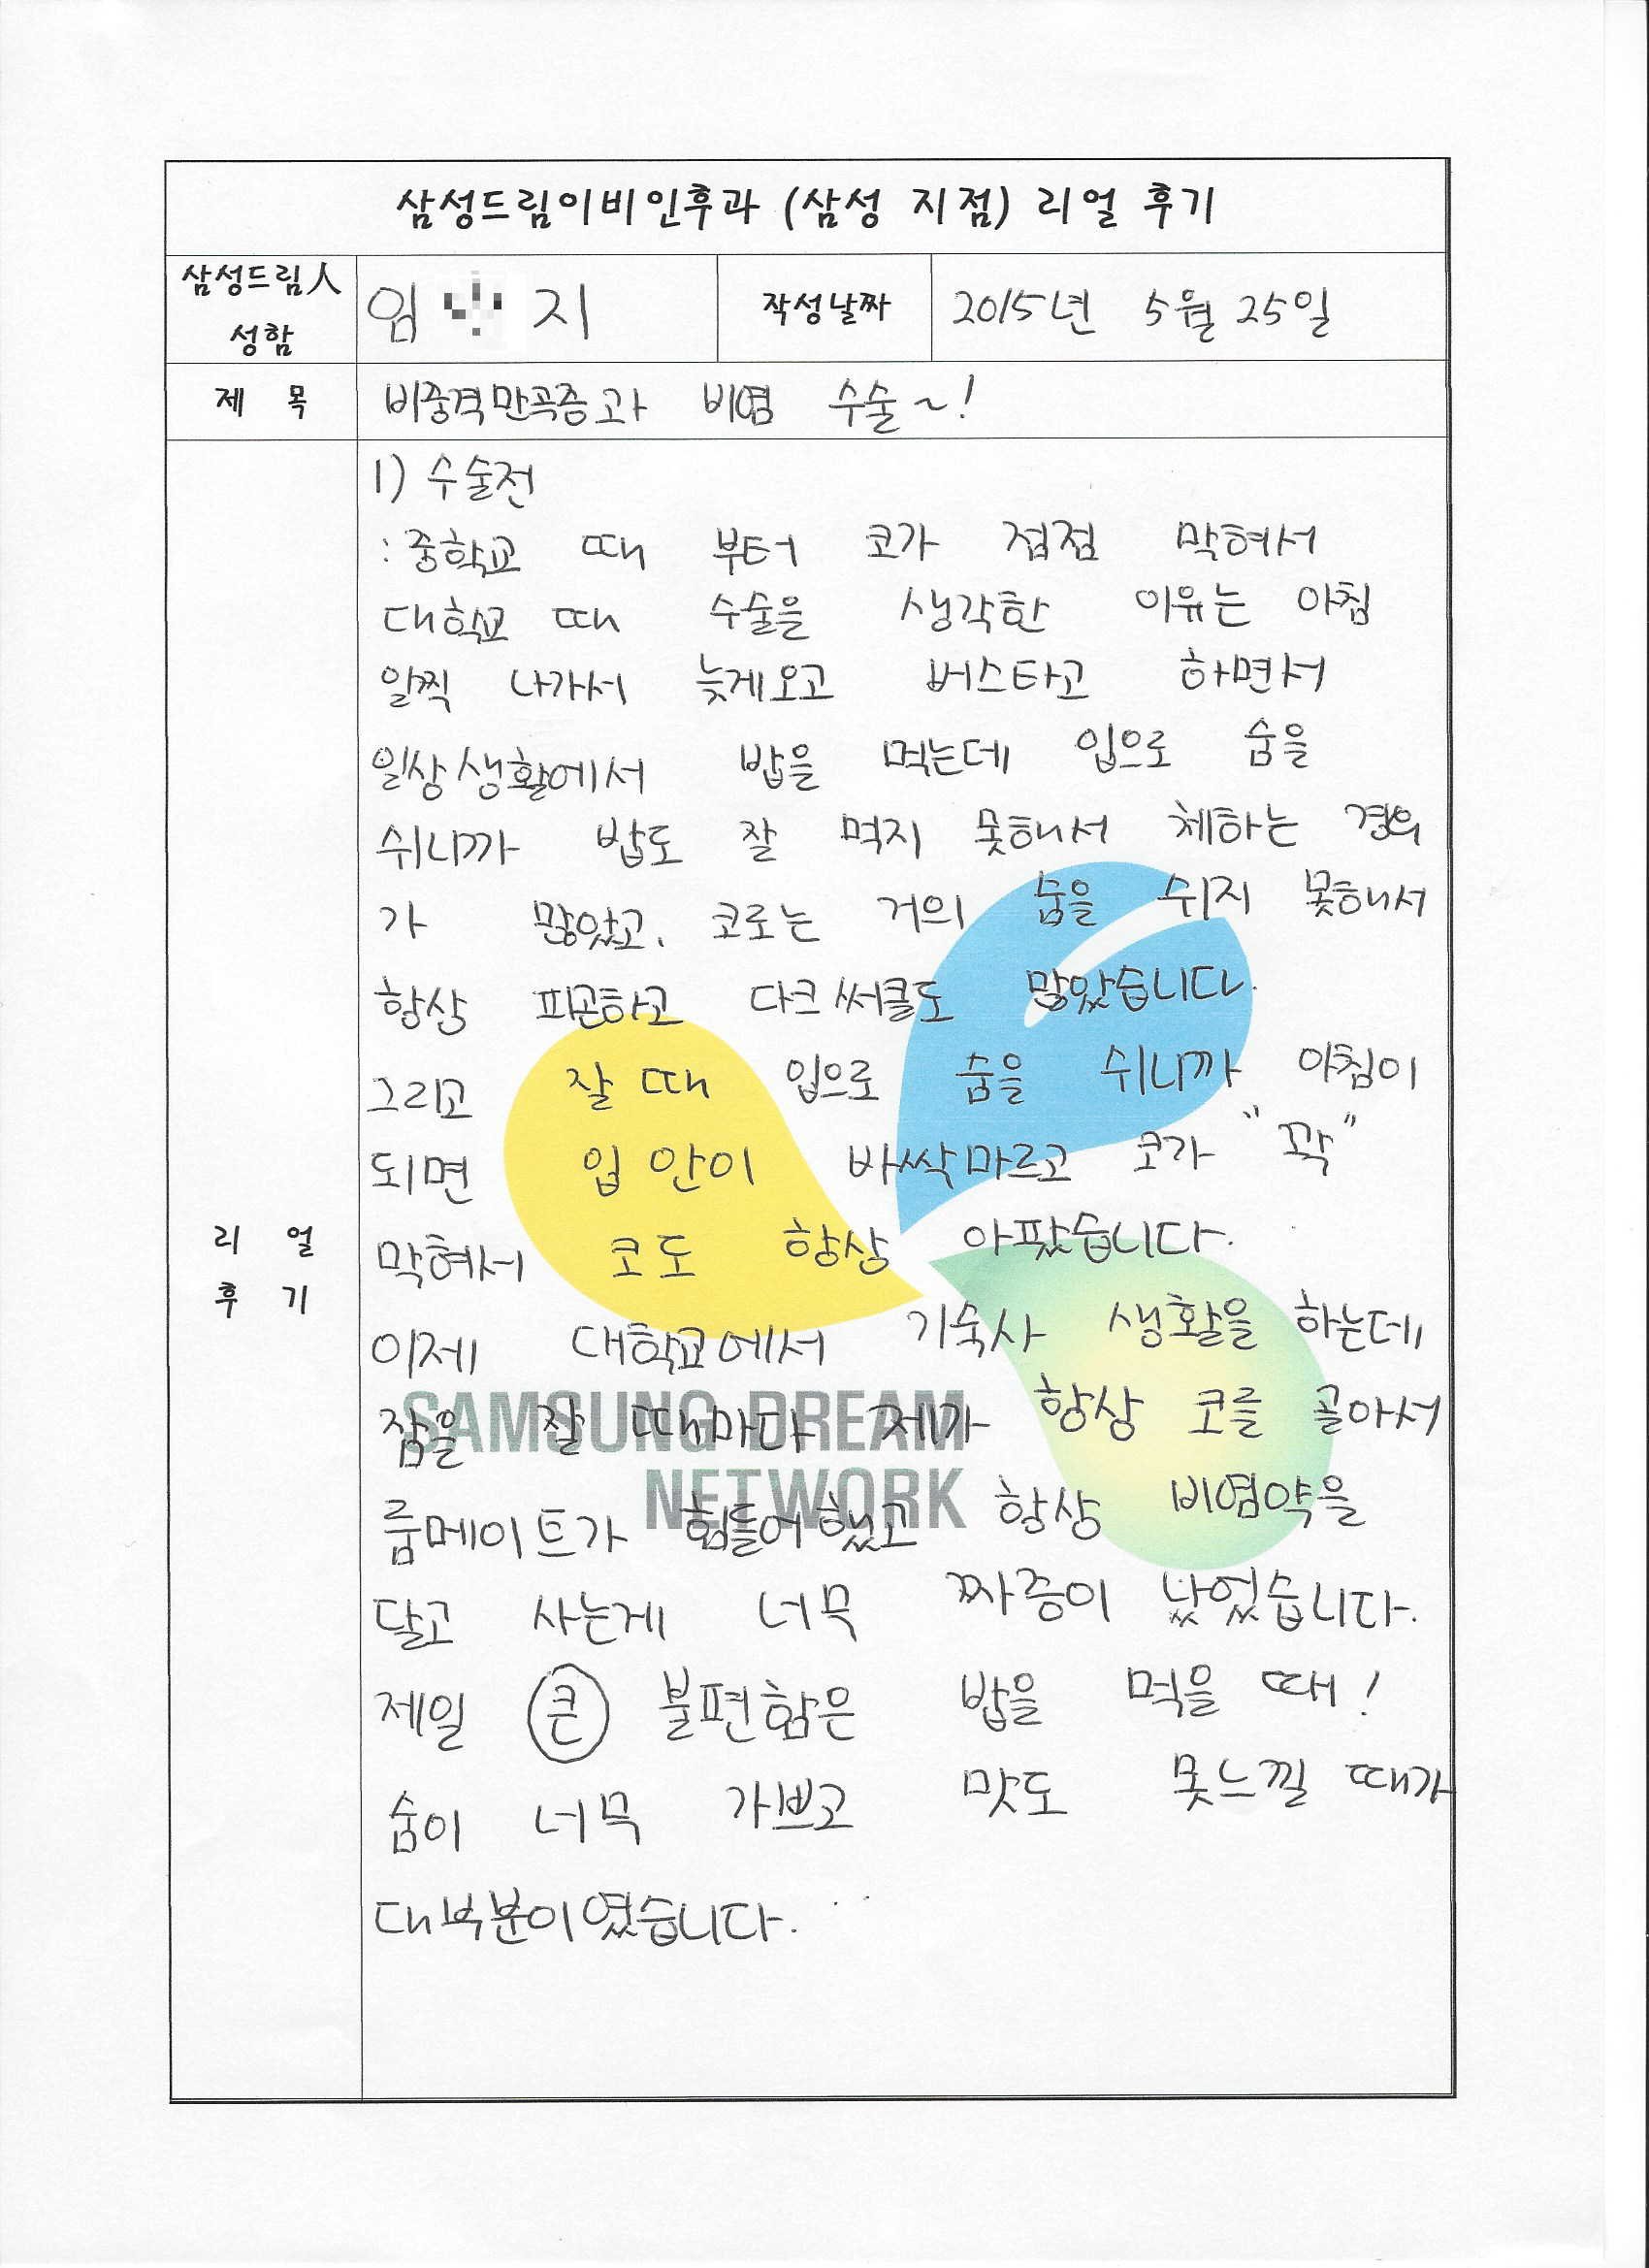 삼성드림이비인후과 (삼성 지점) 리얼 후기
삼성드림人 성함
임 지
작성날짜
2015년 5월 25일
제 목
비중격만곡증과 비염 수술~!
리 얼 후 기
1) 수술전
: 중학교 때 부터 코가 점점 막혀서
대학교 때 수술을 생각한 이유는 아침
일찍 나가서 늦게오고 버스타고 하면서
일상생활에서 밥을 먹는데 입으로 숨을
쉬니까 밥도 잘 먹지 못해서 체하는 경우
가 많았고, 코로는 거의 숨을 쉬지 못해서
항상 피곤하고 다크써클도 많았습니다.
그리고 잘 때 입으로 숨을 쉬니까 아침이
되면 입 안이 바싹마르고 코가 "꽉"
막혀서 코도 항상 아팠습니다.
이제 대학교에서 기숙사 생활을 하는데
잠을 잘 때마다 제가 항상 코를 골아서
룸메이트가 힘들어했고 항상 비염약을
달고 사는게 너무 짜증이 났었습니다.
제일 큰 불편함은 밥을 먹을 때!
숨이 너무 가쁘고 맛도 못느낄 때가
대부분이였습니다.
SAMSUNG DREAM
NETWORK